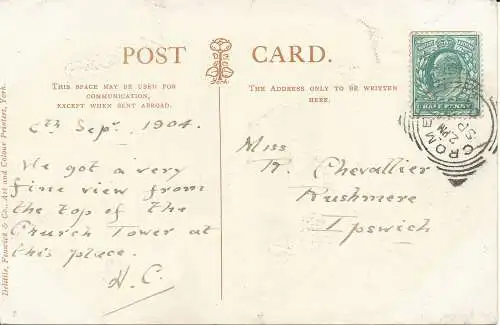 POST CARD.
THIS SPACE MAY BE USED FOR
COMMUNICATION,
EXCEPT WHEN SENT ABROAD.
THE ADDRESS ONLY TO BE WRITTEN
HERE.
6th Sepr. 1904.
We got a very
fine view from
the top of the
Church Tower at
this place.
H.C.
Miss
R. Chevallier
Rushmere
Ipswich
HALF PENNY
CROME
SP
Delittle, Fenwick & Co., Art and Colour Printers, York.